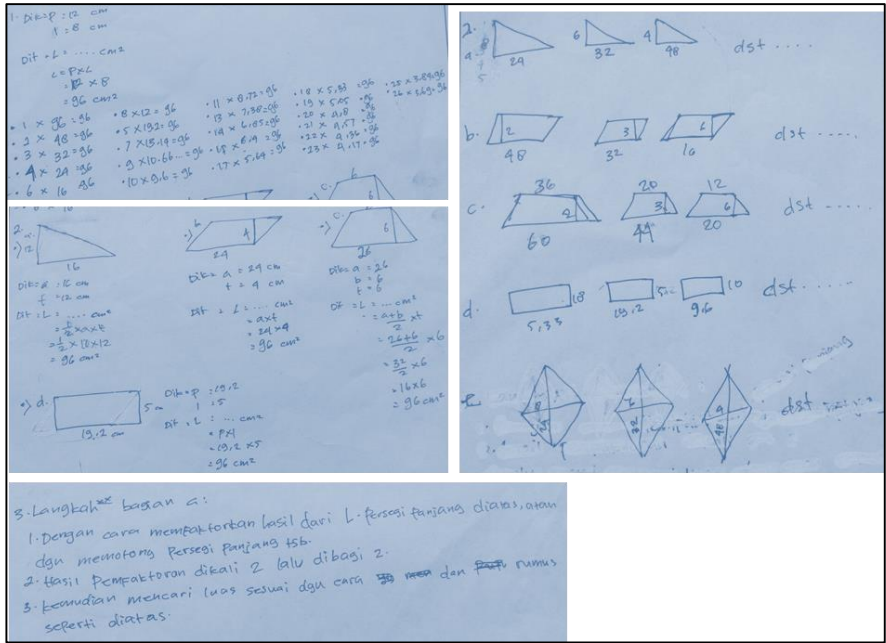 1. Dik = P = 12 cm
l = 8 cm
Dit = L = .... cm²
L = P x L
= 12 x 8
= 96 cm²
• 1 x 96 = 96
• 2 x 48 = 96
• 3 x 32 = 96
• 4 x 24 = 96
• 6 x 16 = 96
• 8 x 12 = 96
• 5 x 19,2 = 96
• 7 x 13,14 = 96
• 9 x 10.66... = 96
• 10 x 9,6 = 96
• 11 x 8,72 = 96
• 13 x 7,38 = 96
• 14 x 6,85 = 96
• 15 x 6,4 = 96
• 17 x 5,64 = 96
• 18 x 5,33 = 96
• 19 x 5,05 = 96
• 20 x 4,8 = 96
• 21 x 4,57 = 96
• 22 x 4,36 = 96
• 23 x 4,17 = 96
• 25 x 3.84 = 96
• 26 x 3.69 = 96
2. a.
12
16
Dik = a = 16 cm
t = 12 cm
Dit = L = .... cm²
= 1/2 x a x t
= 1/2 x 16 x 12
= 96 cm²
b.
4
24
Dik = a = 24 cm
t = 4 cm
Dit = L = .... cm²
= a x t
= 24 x 4
= 96 cm²
c.
6
26
Dik = a = 26
b = 6
t = 6
Dit = L = ... cm²
= a+b/2 x t
= 26+6/2 x 6
= 32/2 x 6
= 16 x 6
= 96 cm²
d.
5 cm
19,2 cm
Dik = P = 19,2
l = 5
Dit = L = ... cm²
= P x l
= 19,2 x 5
= 96 cm²
2.
a. 8 24 6 32 4 48 dst ....
b. 2 48 3 32 6 16 dst .....
c. 36 2 60 20 3 44 12 6 20 dst .....
d. 18 5,33 5 19,2 10 9,6 dst .....
e. 8 24 6 32 4 48 dst .....
3. Langkah** bagian a:
1. Dengan cara memfaktorkan hasil dari L. Persegi Panjang diatas, atau
dgn memotong Persegi panjang tsb.
2. Hasil Pemfaktoran dikali 2 lalu dibagi 2.
3. kemudian mencari luas sesuai dgn cara dan rumus
seperti diatas.